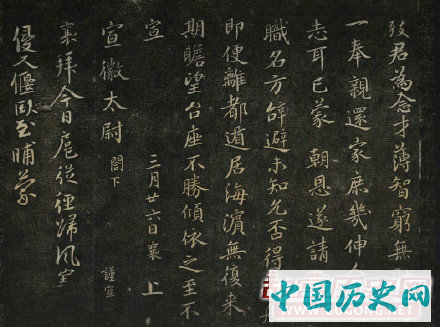 致君為念才薄智窮無
一奉親還家庶幾伸
志耳已蒙 朝恩遂請
職名方辭避未知允否得
即便離都遁居海濱無復来
期瞻望台座不勝傾依之至不
宣 三月廿六日襄 上
宣徽太尉 閤下 謹宣
襄拜今日扈從徑歸風室
侵入偃臥至晡蒙
中国历史网